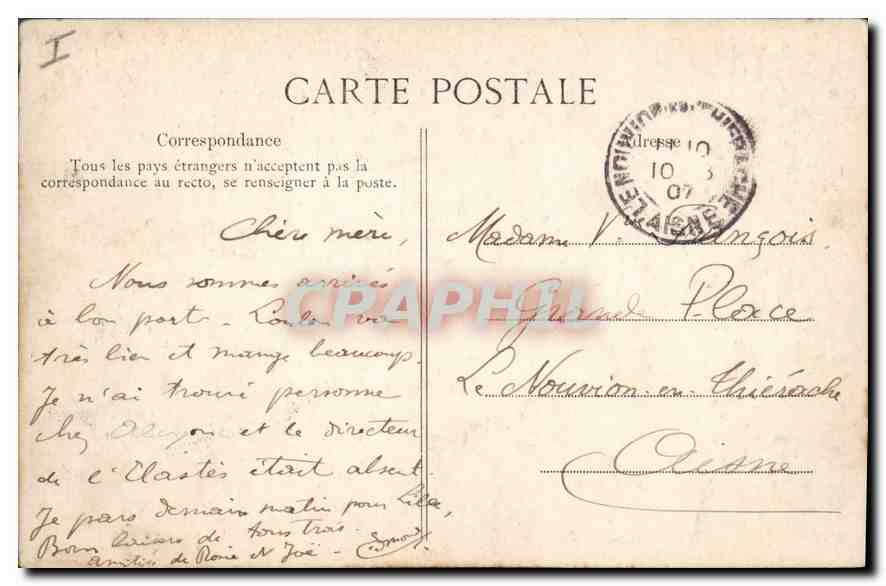 I
CARTE POSTALE
Correspondance
Tous les pays étrangers n'acceptent pas la
correspondance au recto, se renseigner à la poste.
Chère mère,
Nous sommes arrivés
à bon port - Loulou va
très bien et mange beaucoup.
Je n'ai trouvé personne
chez et le directeur
de l' était absent.
Je pars demain matin pour Lille,
Bons baisers de tous trois.
amitiés de et
Adresse
LE NOUVION-EN-THIERACHE
AISNE
10
07
Madame V. François
Grande Place
Le Nouvion-en-Thiérache
Aisne
CPAPHIL